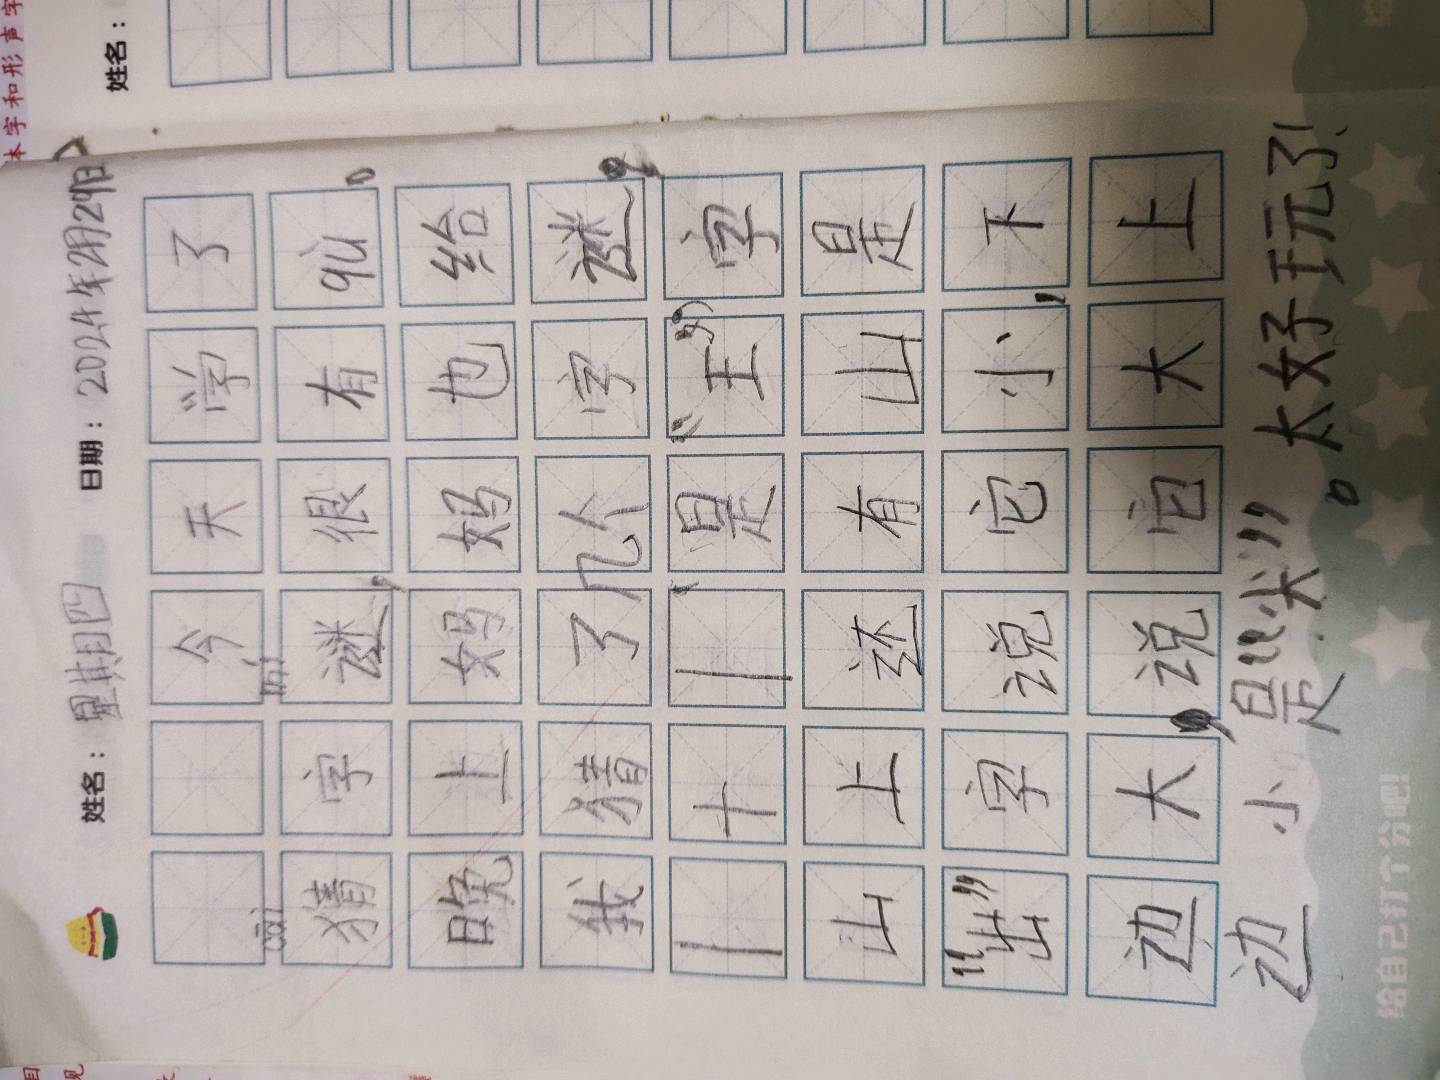 姓名：星期四 日期：2024年2月29日
今天学了
cāi mí
猜字谜，很有qù。
晚上妈妈也给
我猜了几个字谜，
一十一，是“王”字
山上还有山是
“出”字说它小，下
边大，说它大上
边小是“尖”。太好玩了！
给自己打个分吧!!
姓名：
字和形声字